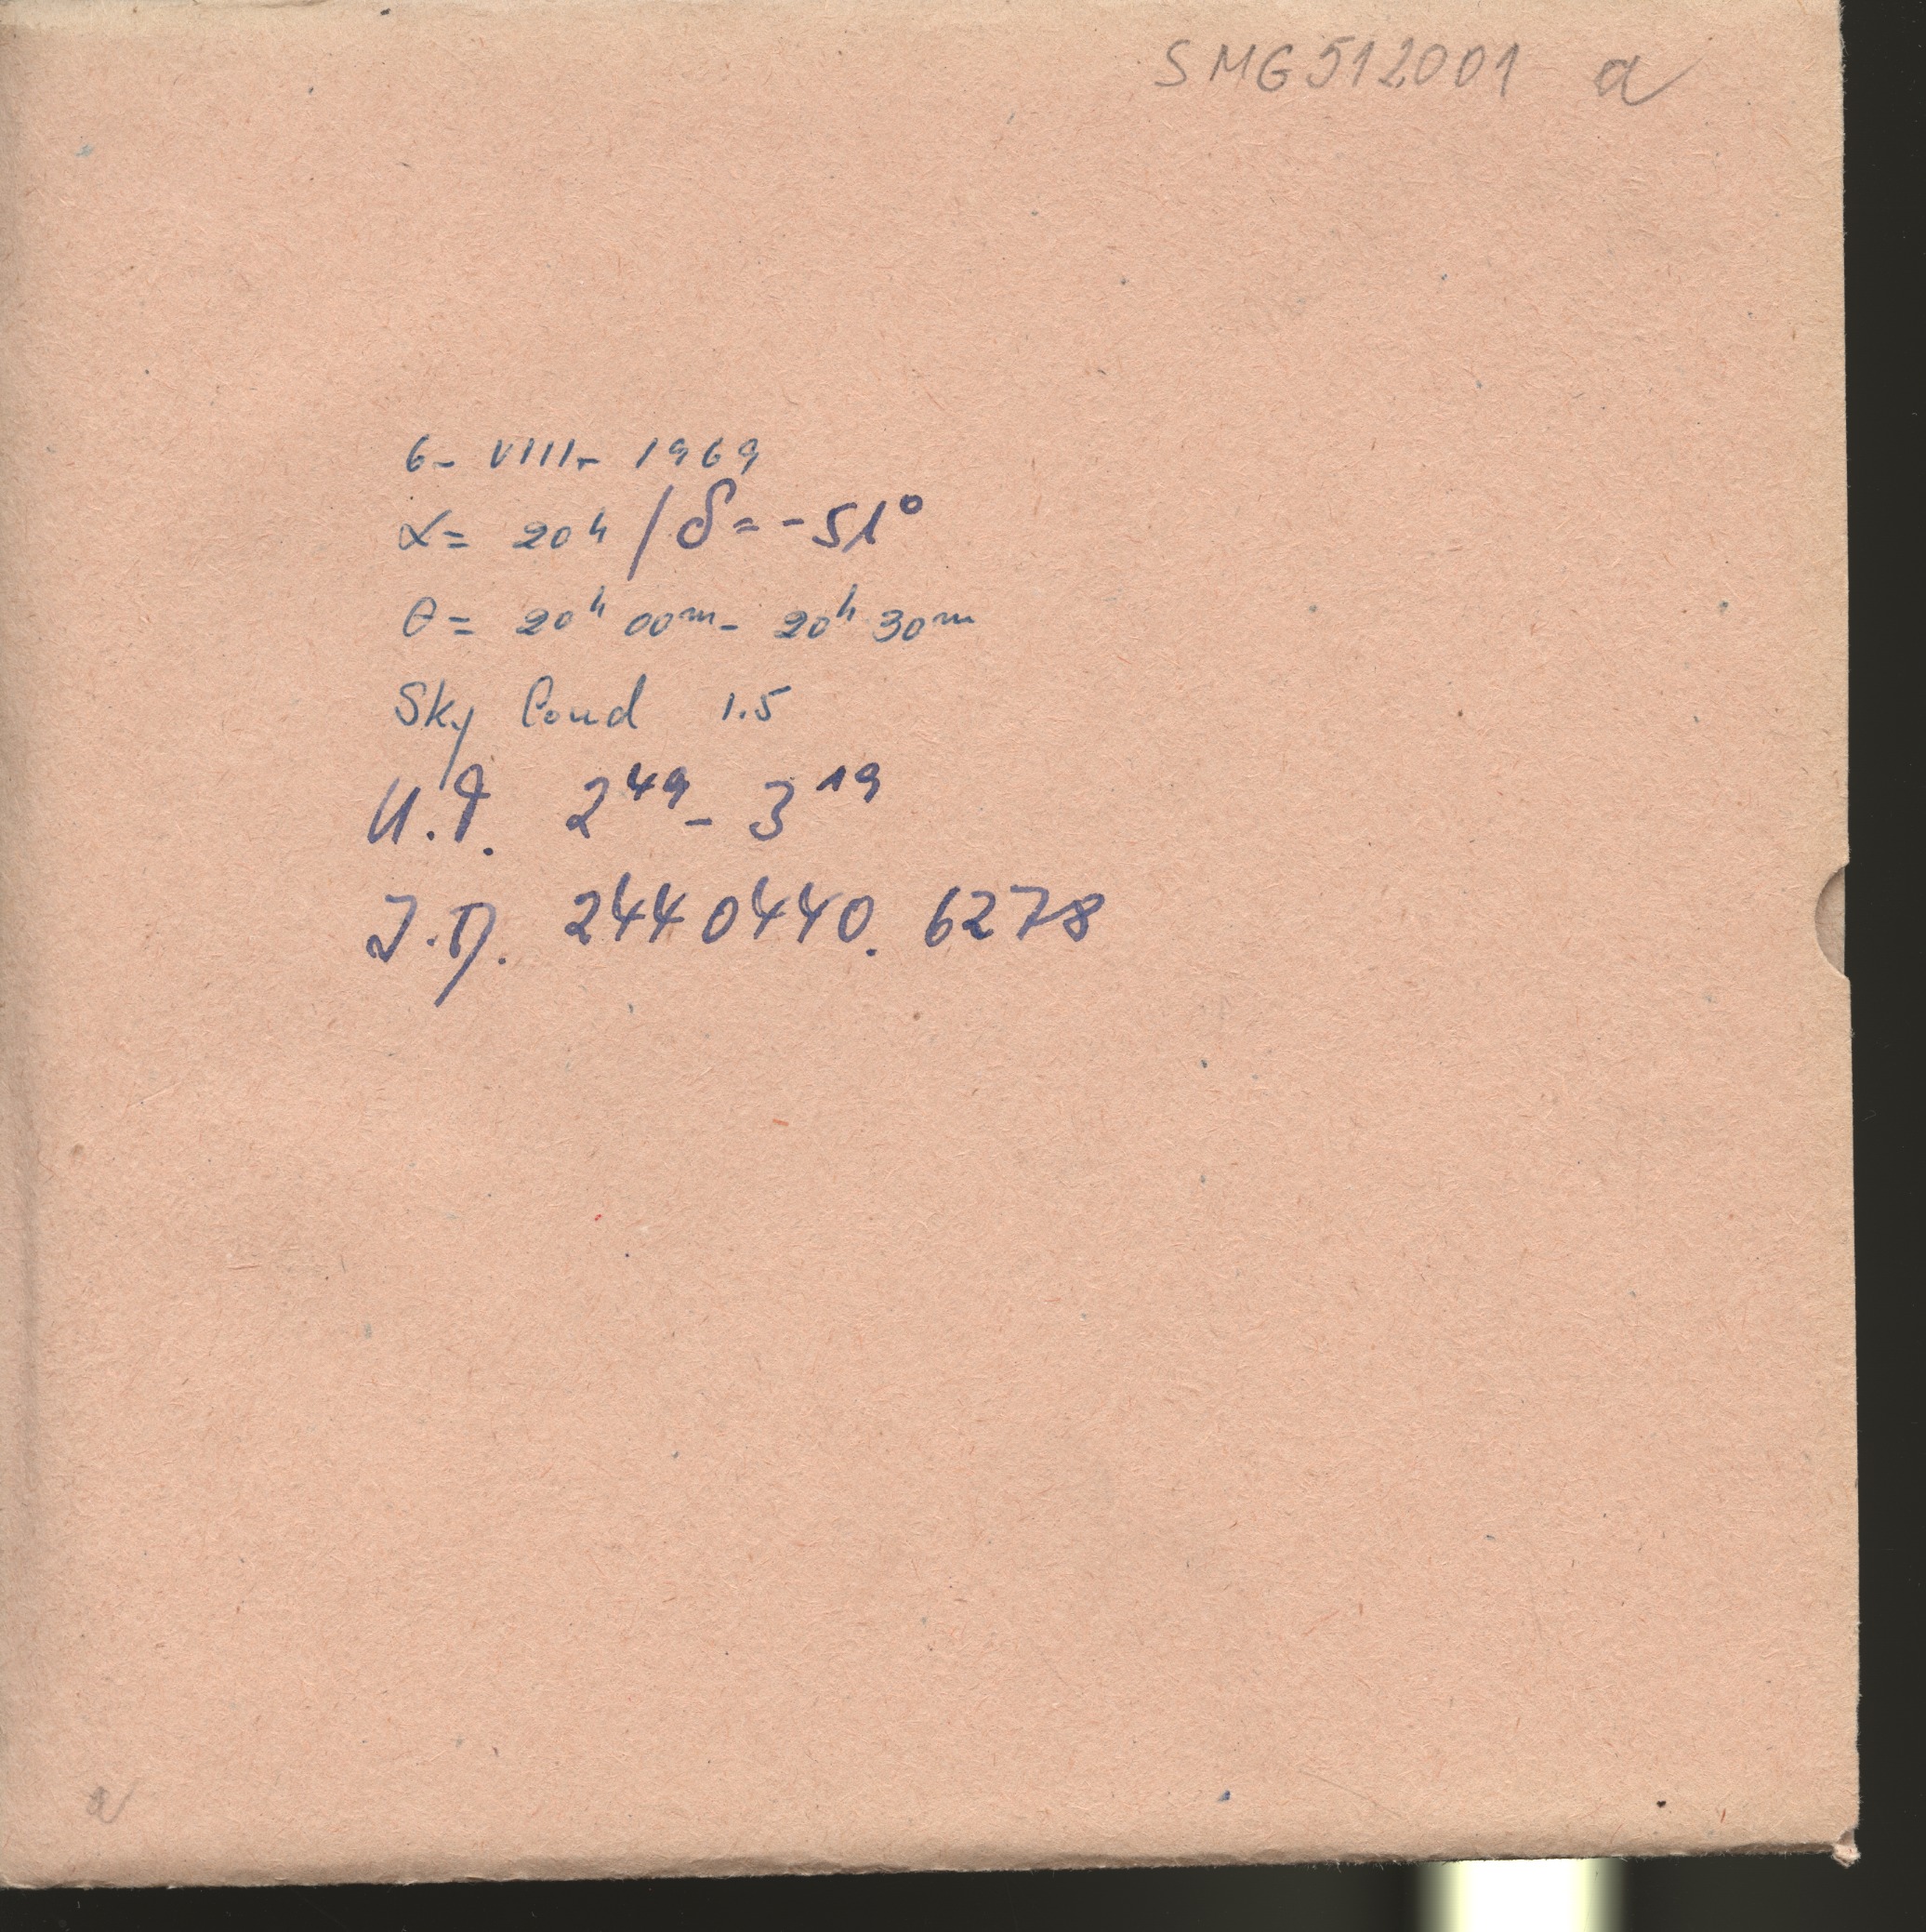 SMG512001 a
6- VIII- 1969
α= 20h / δ= -51°
θ= 20h 00m- 20h 30m
Sky Cond 1.5
U.T. 2⁴⁹- 3¹⁹
J.D. 2440440. 6278
a